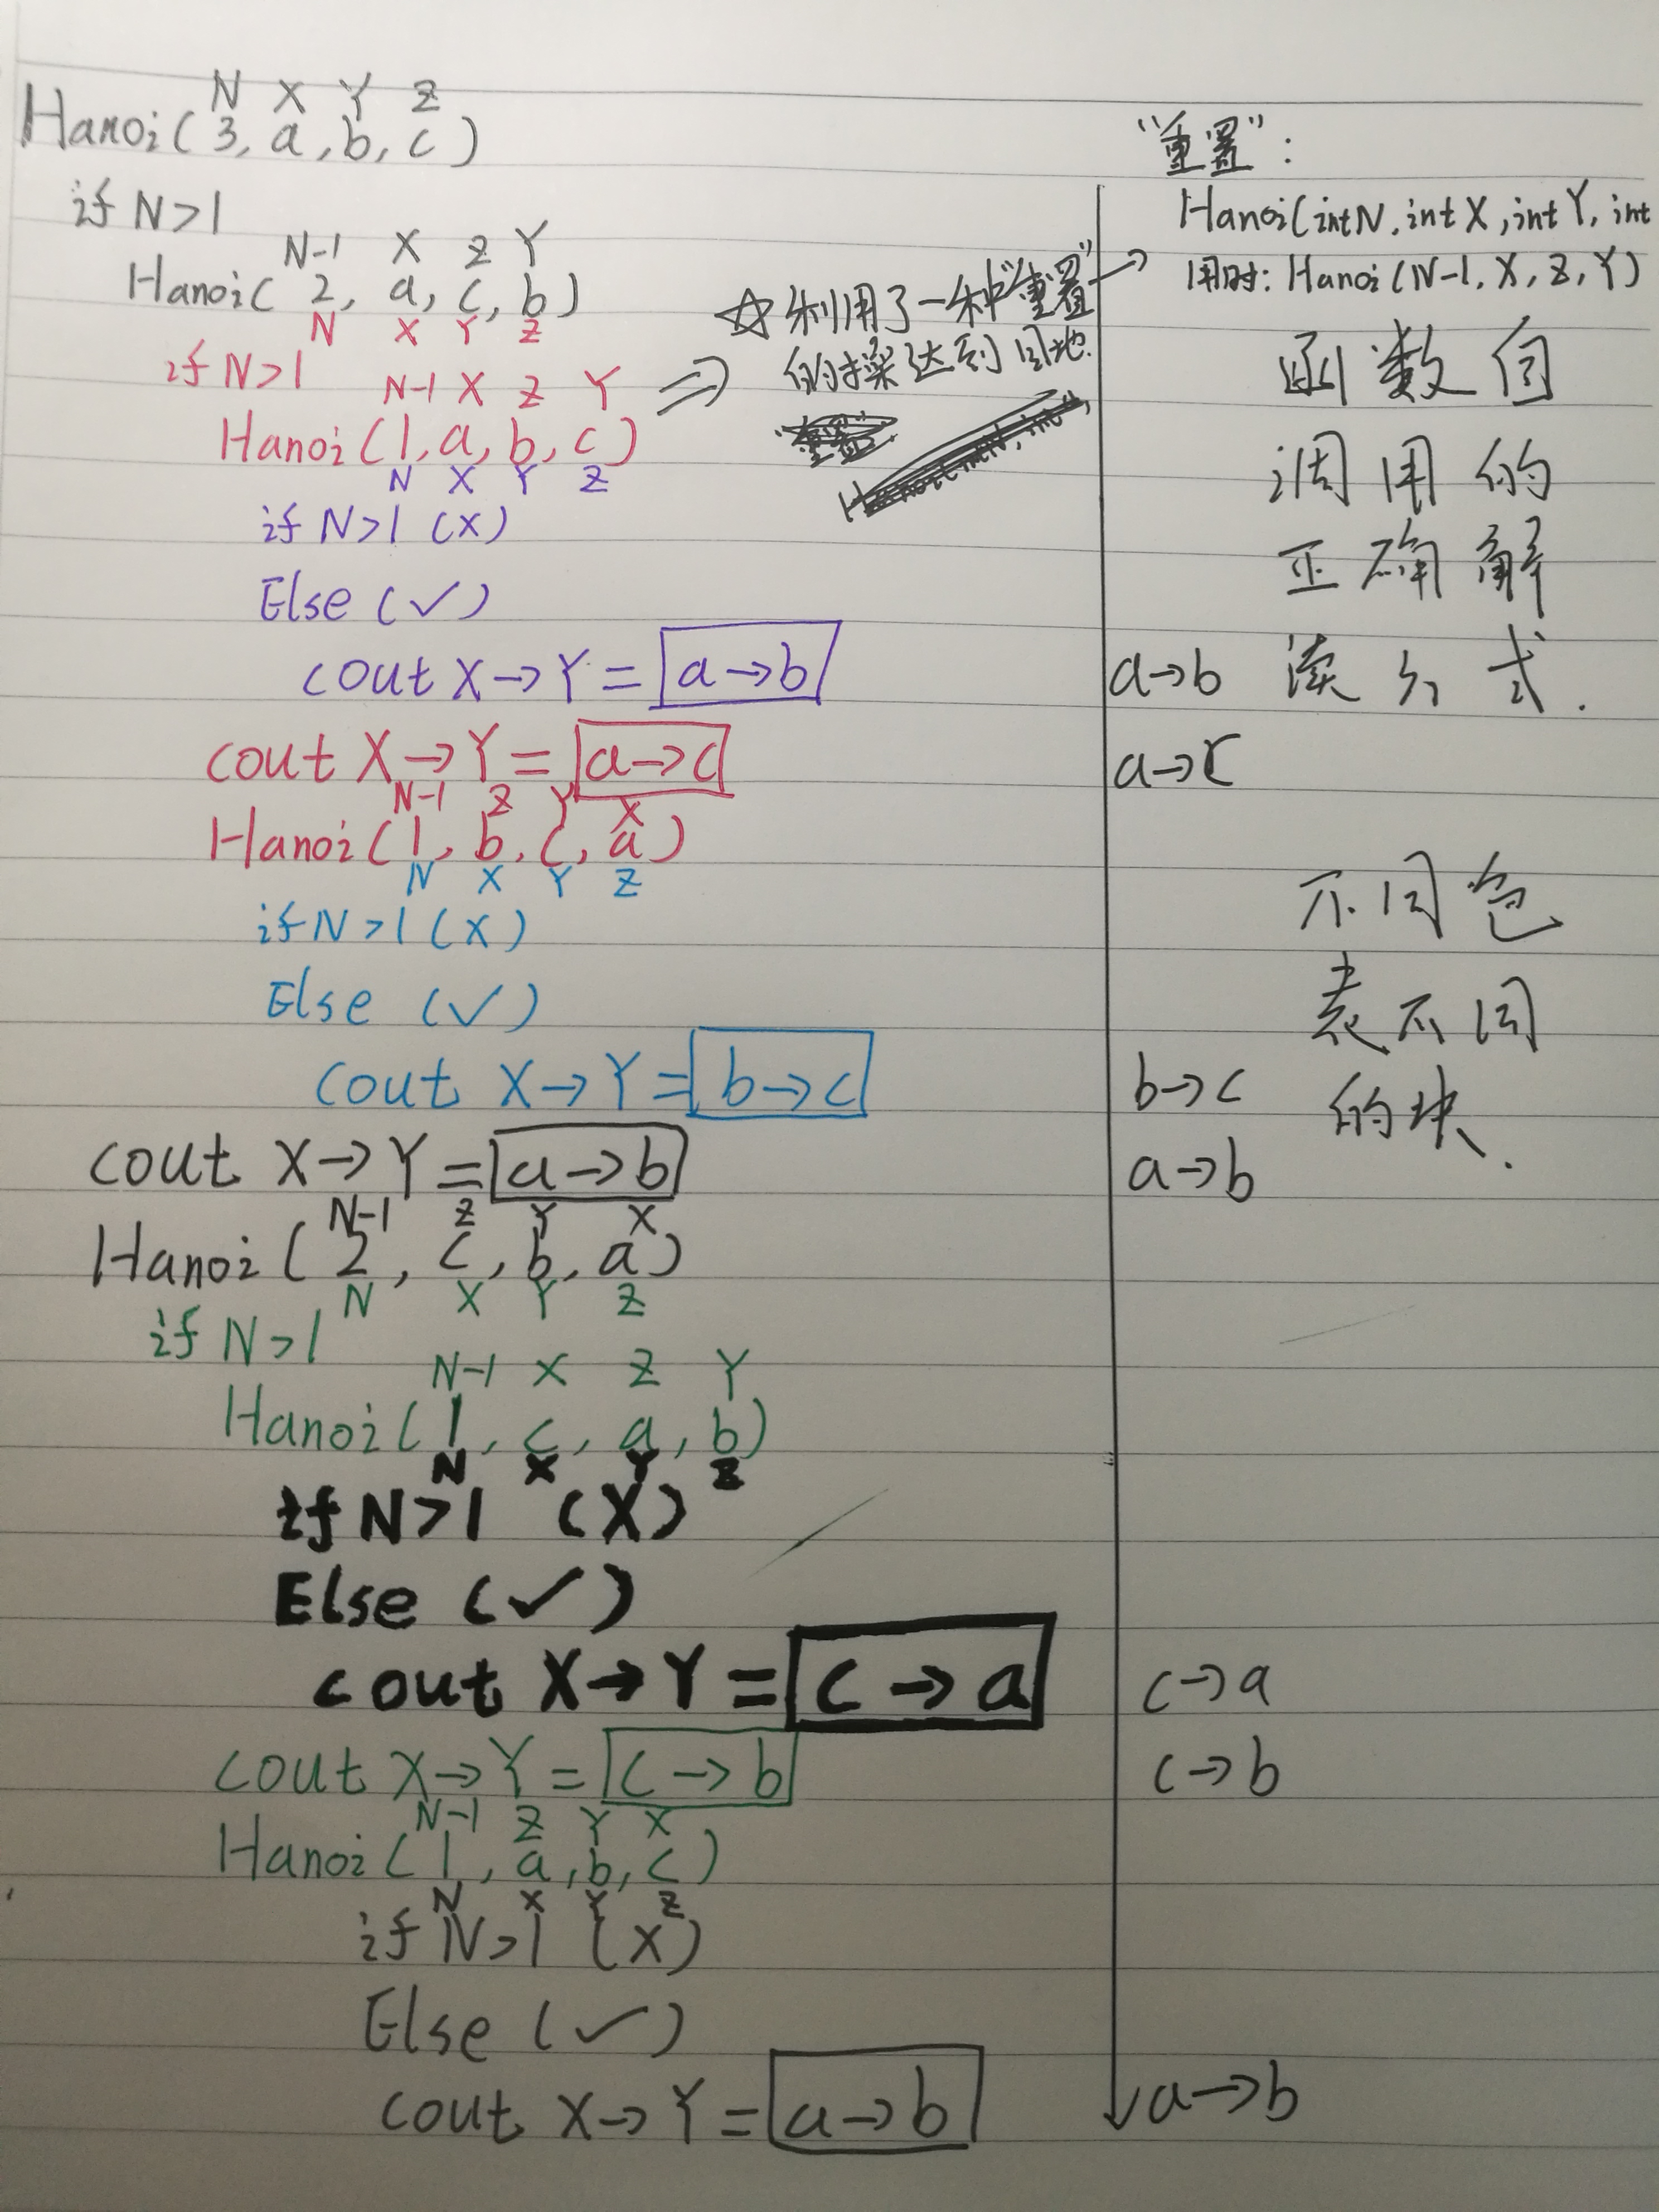 N X Y Z
Hanoi(3, a, b, c)
if N>1
N-1 X Z Y
Hanoi(2, a, c, b)
N X Y Z
if N>1
N-1 X Z Y
Hanoi(1, a, b, c)
N X Y Z
if N>1 (X)
Else (✓)
cout X→Y = a→b
cout X→Y = a→c
N-1 Z Y X
Hanoi(1, b, c, a)
N X Y Z
if N>1 (X)
Else (✓)
cout X→Y = b→c
cout X→Y = a→b
N-1 Z Y X
Hanoi(2, c, b, a)
N X Y Z
if N>1
N-1 X Z Y
Hanoi(1, c, a, b)
N X Y Z
if N>1 (X)
Else (✓)
cout X→Y = c→a
cout X→Y = c→b
N-1 Z Y X
Hanoi(1, a, b, c)
N X Y Z
if N>1 (X)
Else (✓)
cout X→Y = a→b
⇒ ☆利用了一种“重置”→
的操达到目地.
“重置”:
Hanoi(int N, int X, int Y, int
用时: Hanoi(N-1, X, Z, Y)
函数自
调用的
正确解
读方式.
a→b
a→c
不同色
表不同
的块.
b→c
a→b
c→a
c→b
a→b